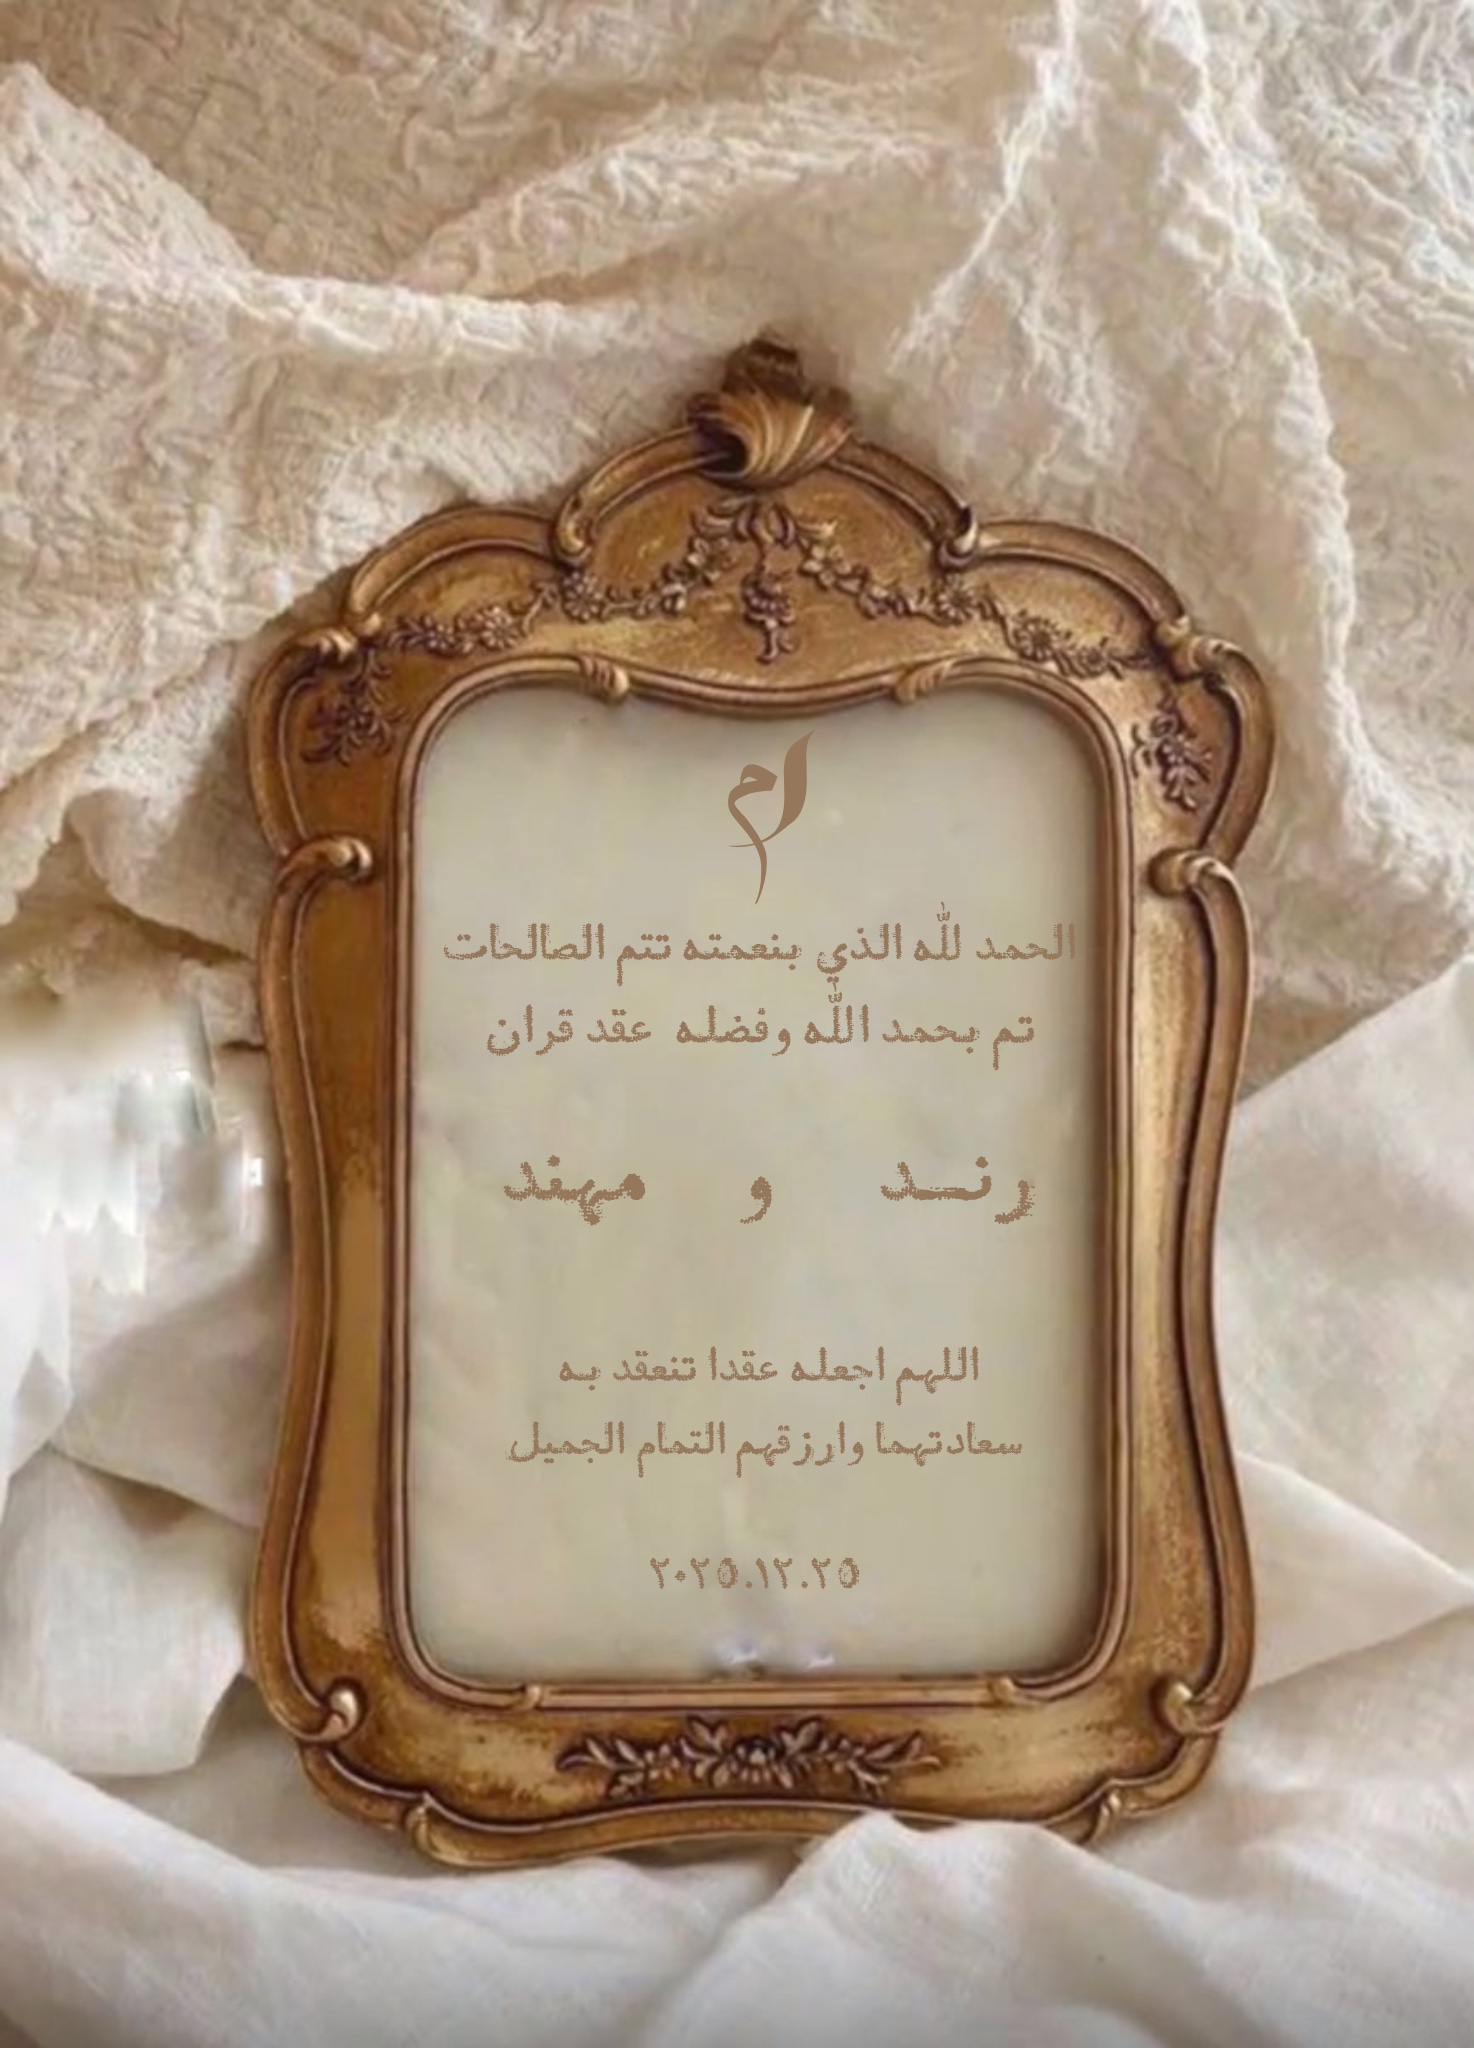 رم
الحمد لله الذي بنعمته تتم الصالحات
تم بحمد الله وفضله عقد قران
رنـد و مهند
اللهم اجعله عقدا تنعقد به
سعادتهما وارزقهم التمام الجميل
٢٠٢٥.١٢.٢٥